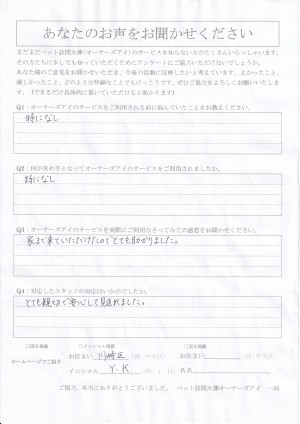 あなたのお声をお聞かせください
まだまだペット訪問火葬(オーナーズアイ)のサービスを知らない方がたくさんいらっしゃいます。
その方たちに少しでも知っていただくためにアンケートにご協力いただけないでしょうか。
あなた様のご意見をお聞かせいただき、今後の活動に反映したいと考えています。よかったこと、
嬉しかったこと、どのような些細なことでもけっこうです。ぜひご協力をよろしくお願いいたしま
す。(できるだけ具体的に書いていただけると助かります)
Q1:オーナーズアイのサービスをご利用される前に悩んでいたことをお教えください。
特になし
Q2:何が決め手となってオーナーズアイのサービスをご利用されましたか。
特になし
Q3:オーナーズアイのサービスを実際にご利用なさってみての感想をお聞かせください。
家まで来ていただけたのでとても助かりました。
Q4:対応したスタッフの対応はいかがでしたか。
とても親切で安心して見送れました。
□イニシャル掲載
ホームページでご紹介 お住まい 川崎区 (例:中央区) お住まい (例:中央区)
イニシャル Y.K (例:T.H) 氏名
ご協力、本当にありがとうございました。 ペット訪問火葬オーナーズアイ